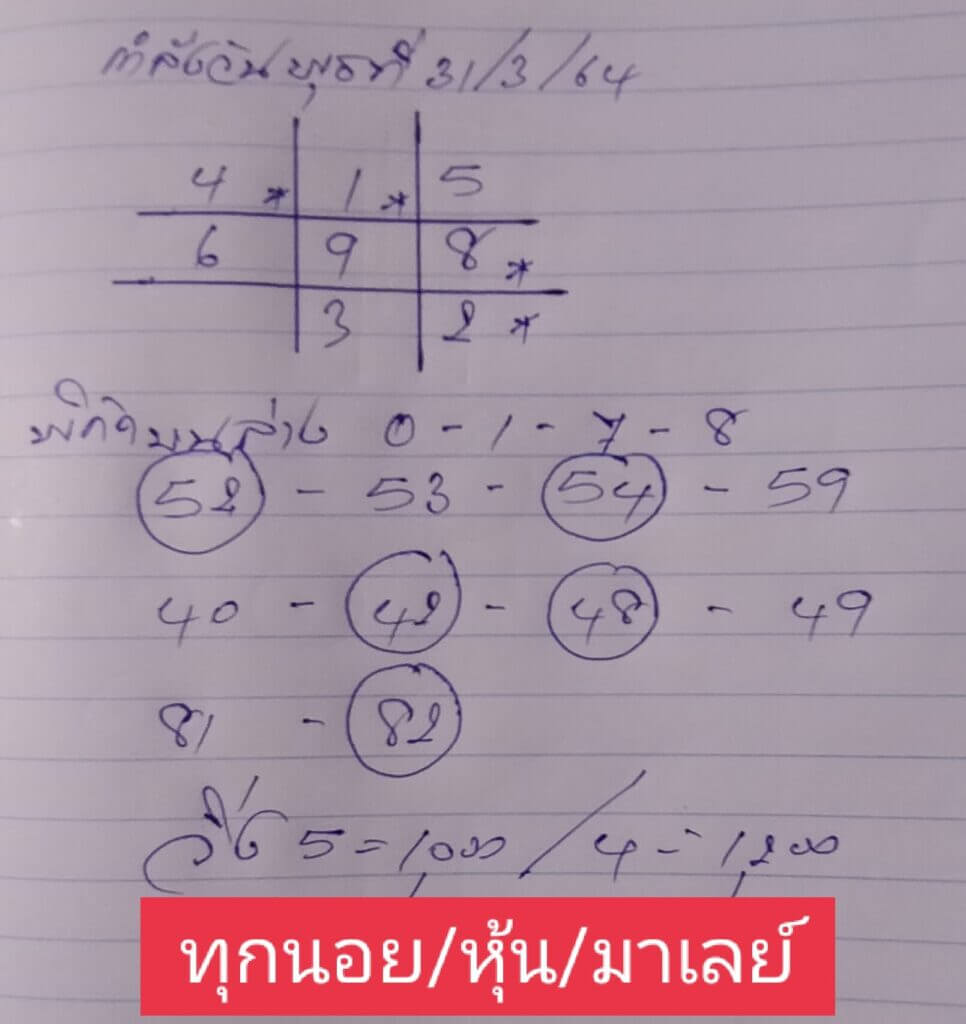 กำลังวันพุธที่ 31/3/64
4 * 1 * 5
6 9 8 *
3 2 *
พิกัดบนล่าง 0 - 1 - 7 - 8
52 - 53 - 54 - 59
40 - 42 - 48 - 49
81 - 82
วิ่ง 5 = 1,000 / 4 = 1,200
ทุกนอย/หุ้น/มาเลย์